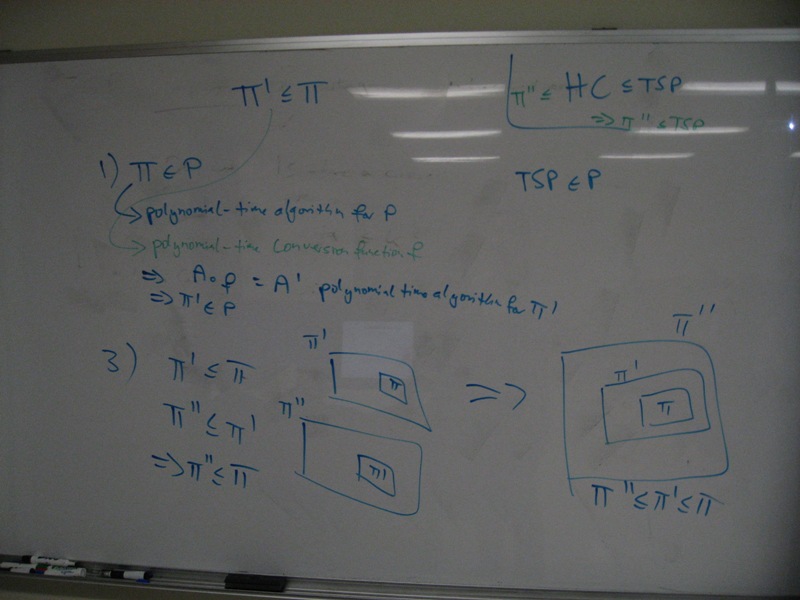 π' ≤ π
π'' ≤ HC ≤ TSP
⇒ π'' ≤ TSP
1) π ∈ P
TSP ∈ P
polynomial-time algorithm for P
polynomial-time conversion function f
⇒ A∘f = A' polynomial time algorithm for π'
⇒ π' ∈ P
3) π' ≤ π
π'' ≤ π'
⇒ π'' ≤ π
π'
π
π''
π'
⇒
π''
π'
π
π'' ≤ π' ≤ π